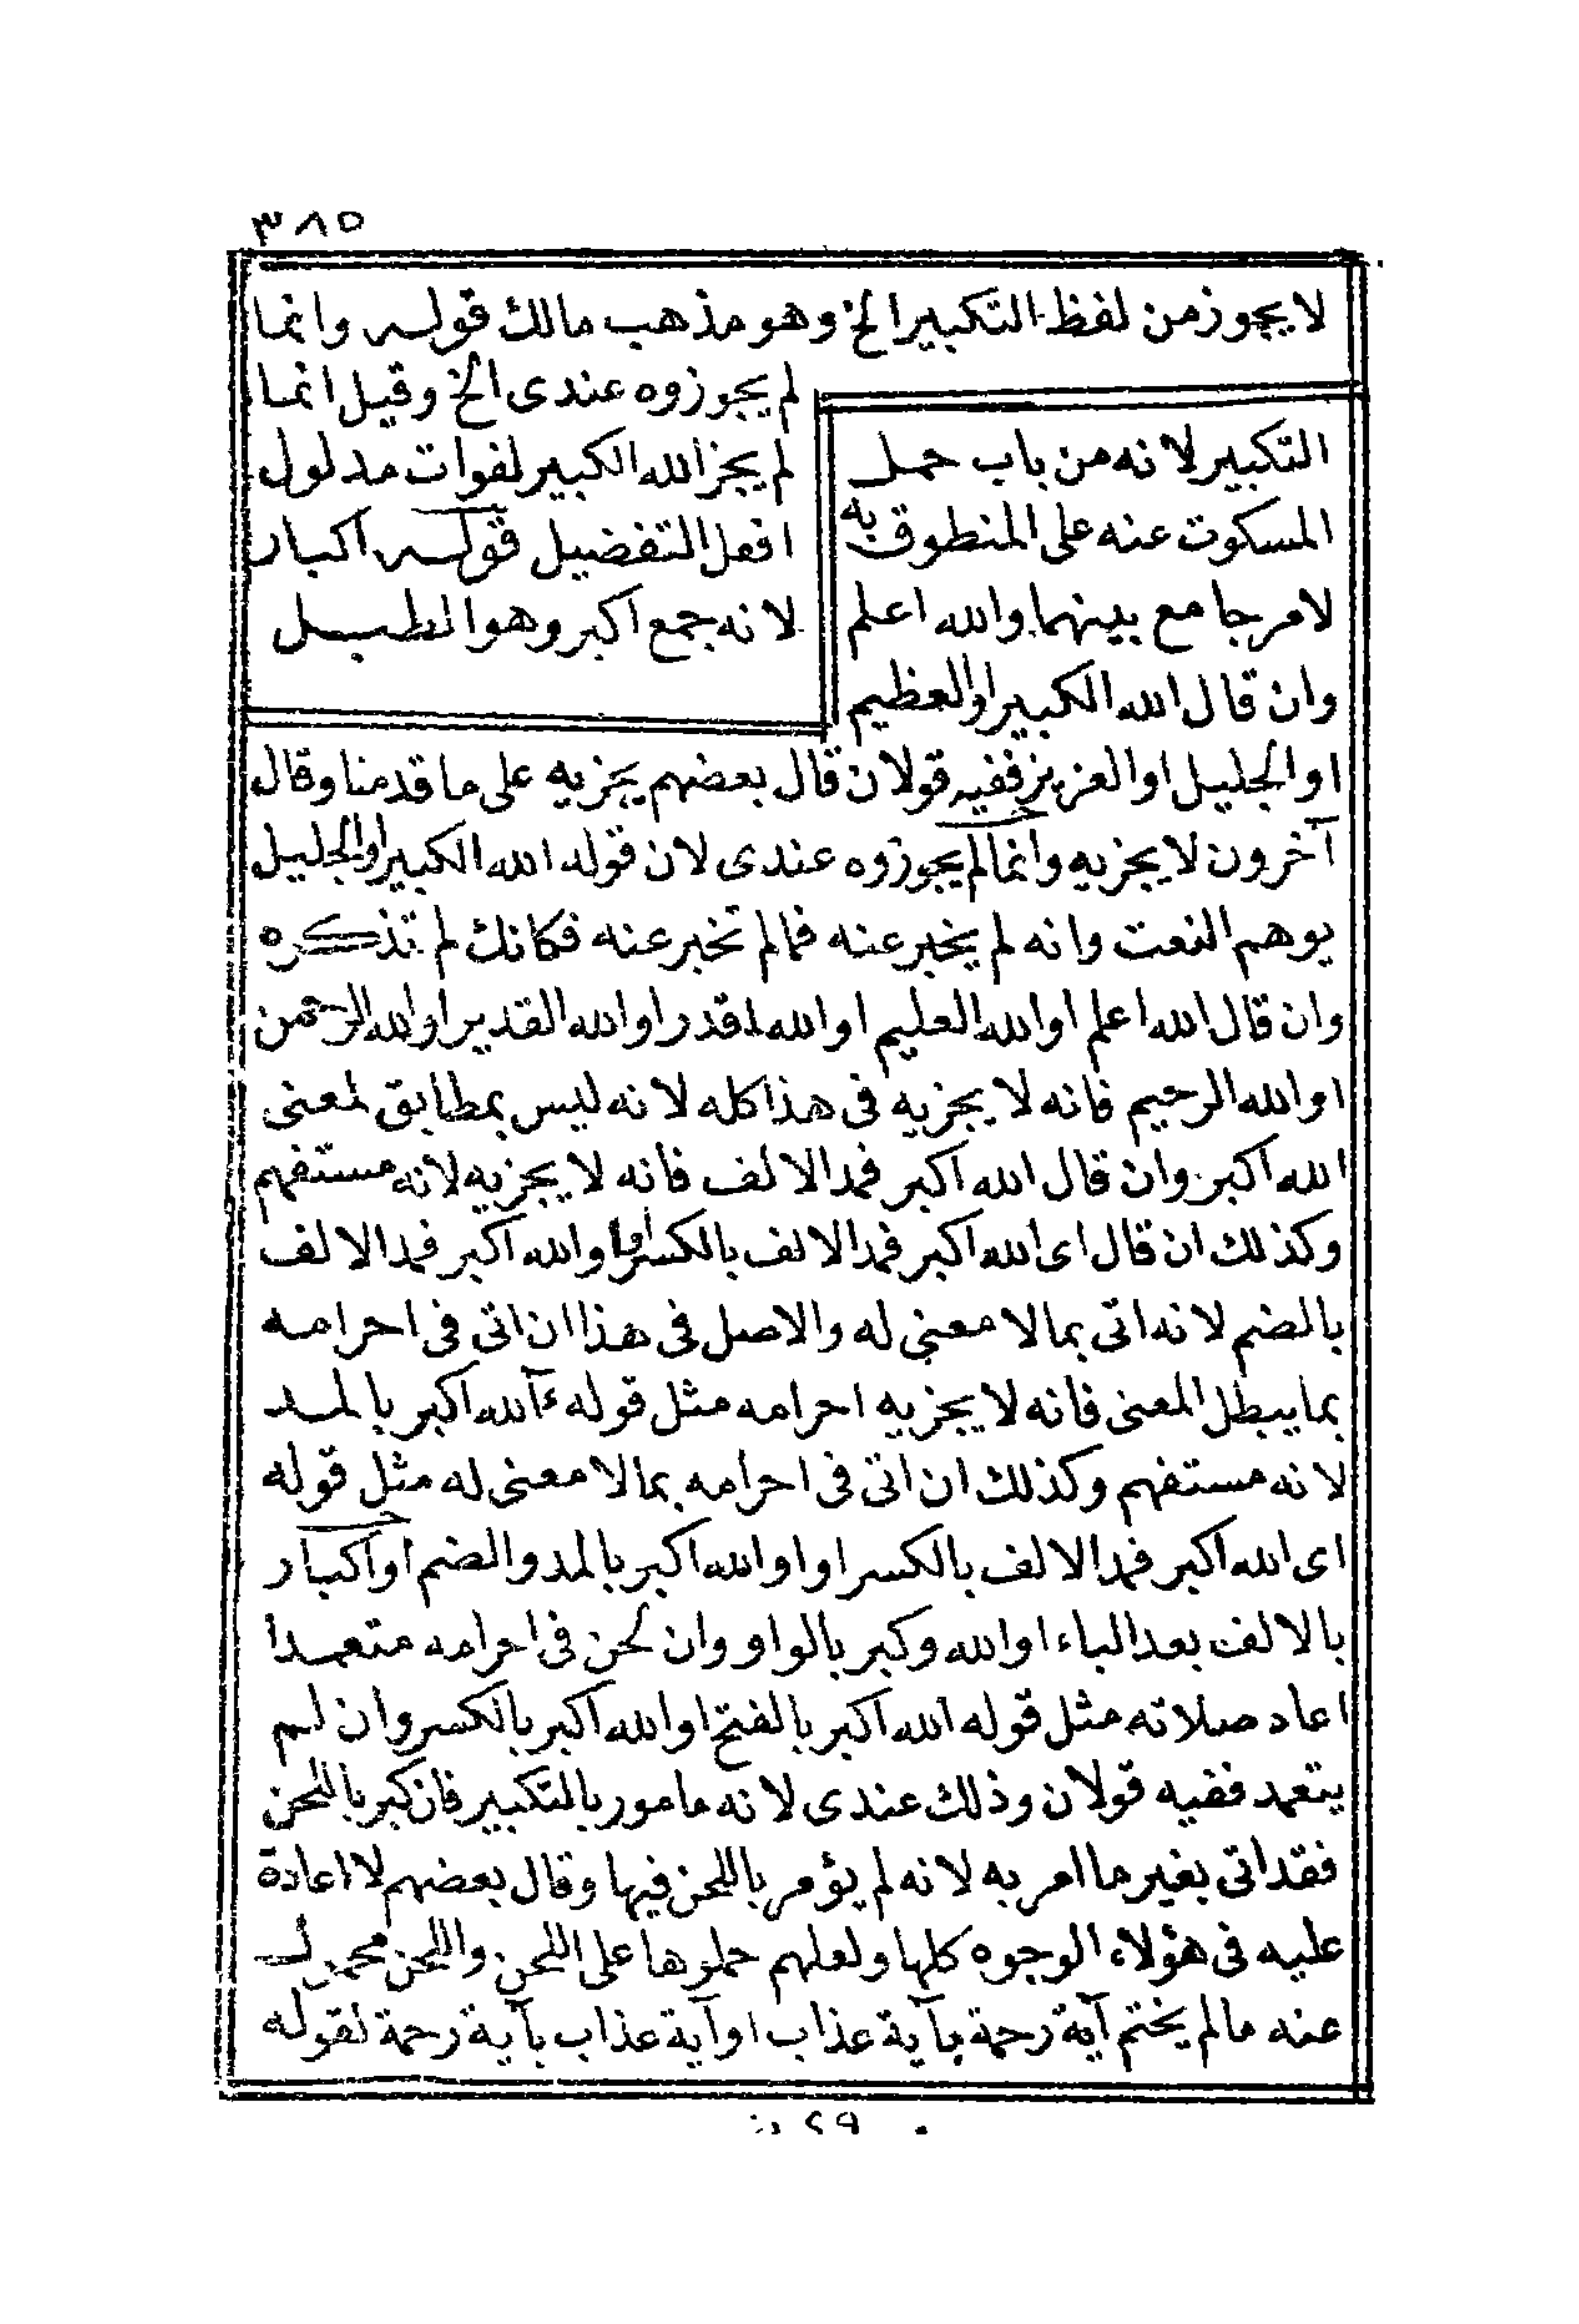 ٣٨٥
لا يجوز من لفظ التكبير الخ وهو مذهب مالك قوله وانما
لم يجوزوه عندى الخ وقيل انما
لم يجز الله الكبير لفوات مدلول
افعل التفضيل قوله اكبار
لانه جمع اكبر وهو الطبل
التكبير لانه من باب حمل
المسكوت عنه على المنطوق به
لامر جامع بينهما والله اعلم
وان قال الله الكبير او العظيم
او الجليل او العزيز ففيه قولان قال بعضهم يجزيه على ما قدمنا وقال
آخرون لا يجزيه وانما لم يجوزوه عندى لان قوله الله الكبير او الجليل
يوهم النعت وانه لم يخبر عنه فما لم تخبر عنه فكانك لم تذكره
وان قال الله اعلم او الله العليم او الله اقدر او الله القدير او الله الرحمن
او الله الرحيم فانه لا يجزيه فى هذا كله لانه ليس بمطابق لمعنى
الله اكبر وان قال الله اكبر فمد الالف فانه لا يجزيه لانه مستفهم
وكذلك ان قال اى الله اكبر فمد الالف بالكسر او ا والله اكبر فمد الالف
بالضم لانه اتى بما لا معنى له والاصل فى هذا ان اتى فى احرامه
بما يبطل المعنى فانه لا يجزيه احرامه مثل قوله ءآلله اكبر بالمد
لانه مستفهم وكذلك ان اتى فى احرامه بما لا معنى له مثل قوله
اى الله اكبر فمد الالف بالكسر او اوالله اكبر بالمد والضم او اكبار
بالالف بعد الباء او الله وكبر بالواو وان لحن فى احرامه متعمدا
اعاد صلاته مثل قوله الله اكبر بالفتح او الله اكبر بالكسر وان لم
يتعمد ففيه قولان وذلك عندى لانه مامور بالتكبير فان كبر باللحن
فقد اتى بغير ما امر به لانه لم يؤمر باللحن فيها وقال بعضهم لا اعادة
عليه فى هؤلاء الوجوه كلها ولعلهم حملوها على اللحن واللحن محمول
عنه ما لم يختم آية رحمة بآية عذاب او آية عذاب بآية رحمة لقوله